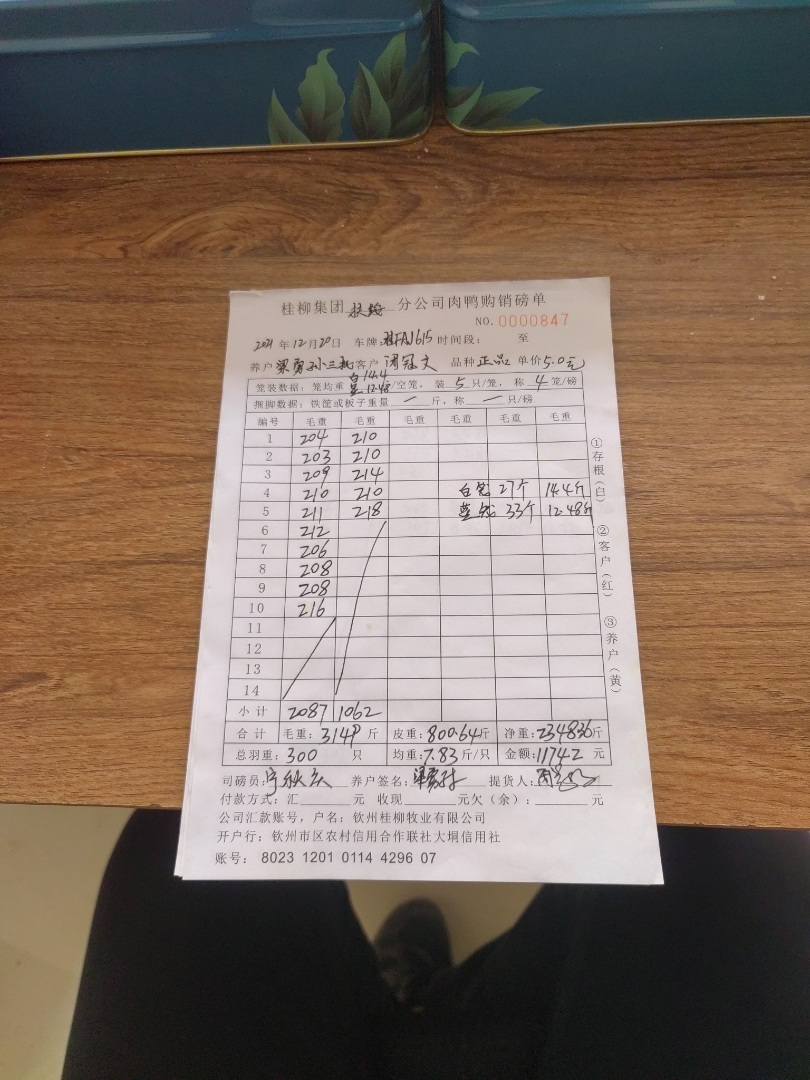 桂柳集团 扶绥 分公司肉鸭购销磅单
NO. 0000847
2021年12月20日 车牌: 时间段: 至
养户 客户 周冠文 品种 正品 单价 5.0元
笼装数据: 笼均重 白14.4 蓝12.48 /空笼, 装 5 只/笼, 称 4 笼/磅
捆脚数据: 铁篮或板子重量 一 斤, 称 一 只/磅
编号 毛重 毛重 毛重 毛重 毛重 毛重
1 204 210
2 203 210
3 209 214
4 210 210 白笼 27个 14.4斤
5 211 218 蓝笼 33个 12.48斤
6 212
7 206
8 208
9 208
10 216
11
12
13
14
小计 2087 1062
合计 毛重: 3149 斤 皮重: 800.64斤 净重: 2348.36斤
总羽重: 300 只 均重: 7.83 斤/只 金额: 11742 元
司磅员: 养户签名: 提货人:
付款方式: 汇 元 收现 元欠(余): 元
公司汇款账号, 户名: 钦州桂柳牧业有限公司
开户行: 钦州市区农村信用合作联社大垌信用社
账号: 8023 1201 0114 4296 07
①存根(白) ②客户(红) ③养户(黄)